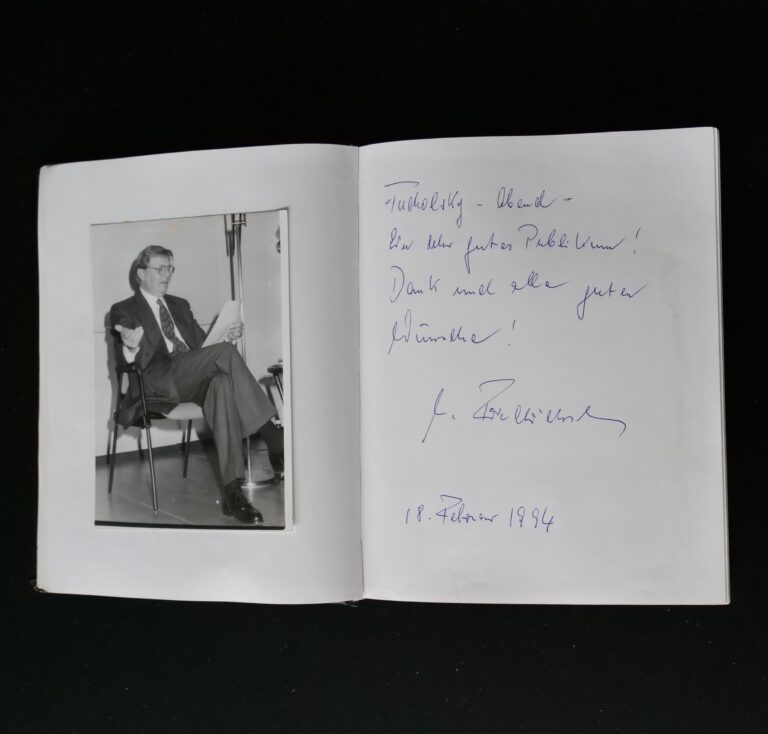 Tucholsky - Abend -
Ein sehr gutes Publikum!
Dank und alle guten
Wünsche!
18. Februar 1994